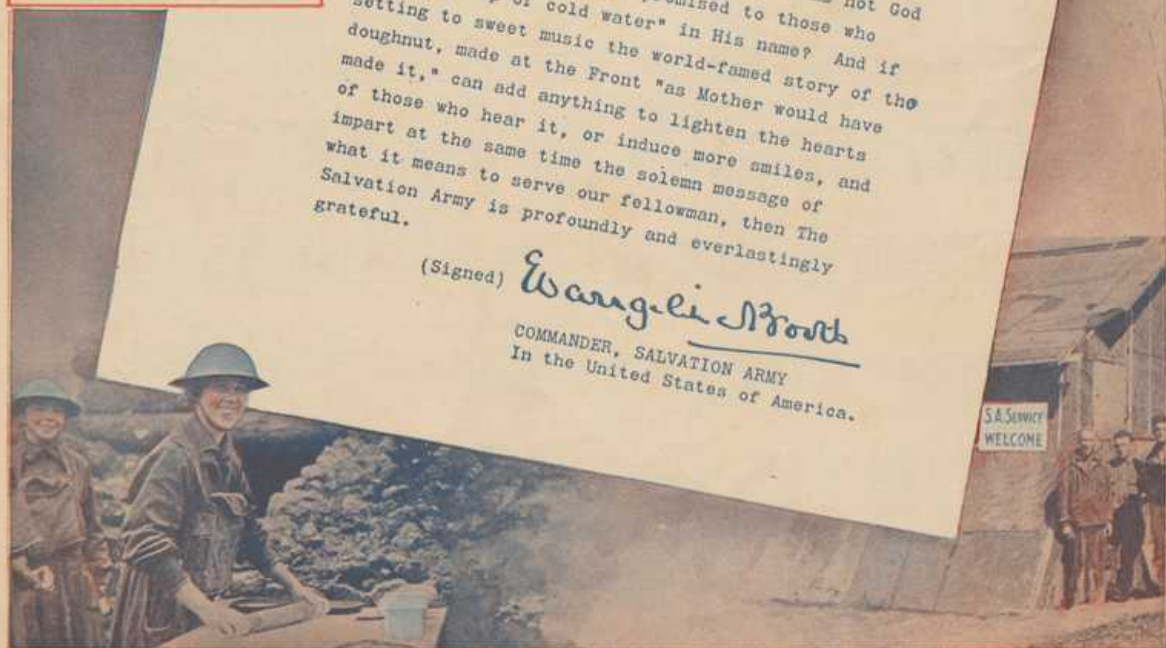 not God
to those who
of cold water" in His name? And if
setting to sweet music the world-famed story of the
doughnut, made at the Front "as Mother would have
made it," can add anything to lighten the hearts
of those who hear it, or induce more smiles, and
impart at the same time the solemn message of
what it means to serve our fellowman, then The
Salvation Army is profoundly and everlastingly
grateful.
(Signed) Evangeline Booth
COMMANDER, SALVATION ARMY
In the United States of America.
S.A. SERVICE
WELCOME